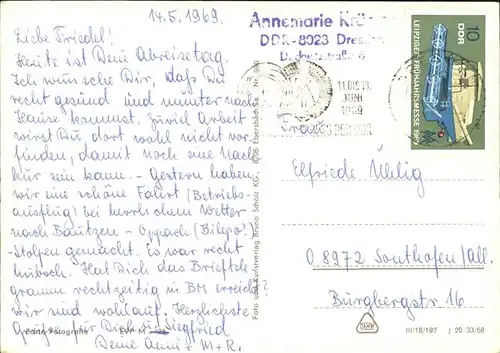 14.5.1969.
Liebe Friedel!
Heute ist Deine Abreisetag.
Ich wünsche Dir, daß Du
recht gesund und munter nach
Hause kommst. Zuviel Arbeit
wirst Du dort wohl nicht vor-
finden, damit noch eine Nach
kür sein kann. – Gestern haben
wir eine schöne Fahrt (Betriebs-
ausflug) bei herrlichem Wetter
nach Bautzen – Oppach (Bilepo!)
Stolpen gemacht. Es war recht
hübsch. Hat Dich das Brieftele-
gramm rechtzeitig in BM erreicht?
Wir sind wohlauf. Herzlichste
Grüße Siegfried
Deine Anni + M + R.
Echte Fotografie
Foto und Kunstverlag Bruno Scholz KG., 8706 Ebersbach Sa.
Annemarie
DDR-8023 Dresden
JUNI
1969
10
DDR
LEIPZIGER FRÜHJAHRSMESSE 1969
Frau
Elfriede Uhlig
D 8972 Sonthofen/All.
Burgbergstr 16
III/18/197 J 20 33/68